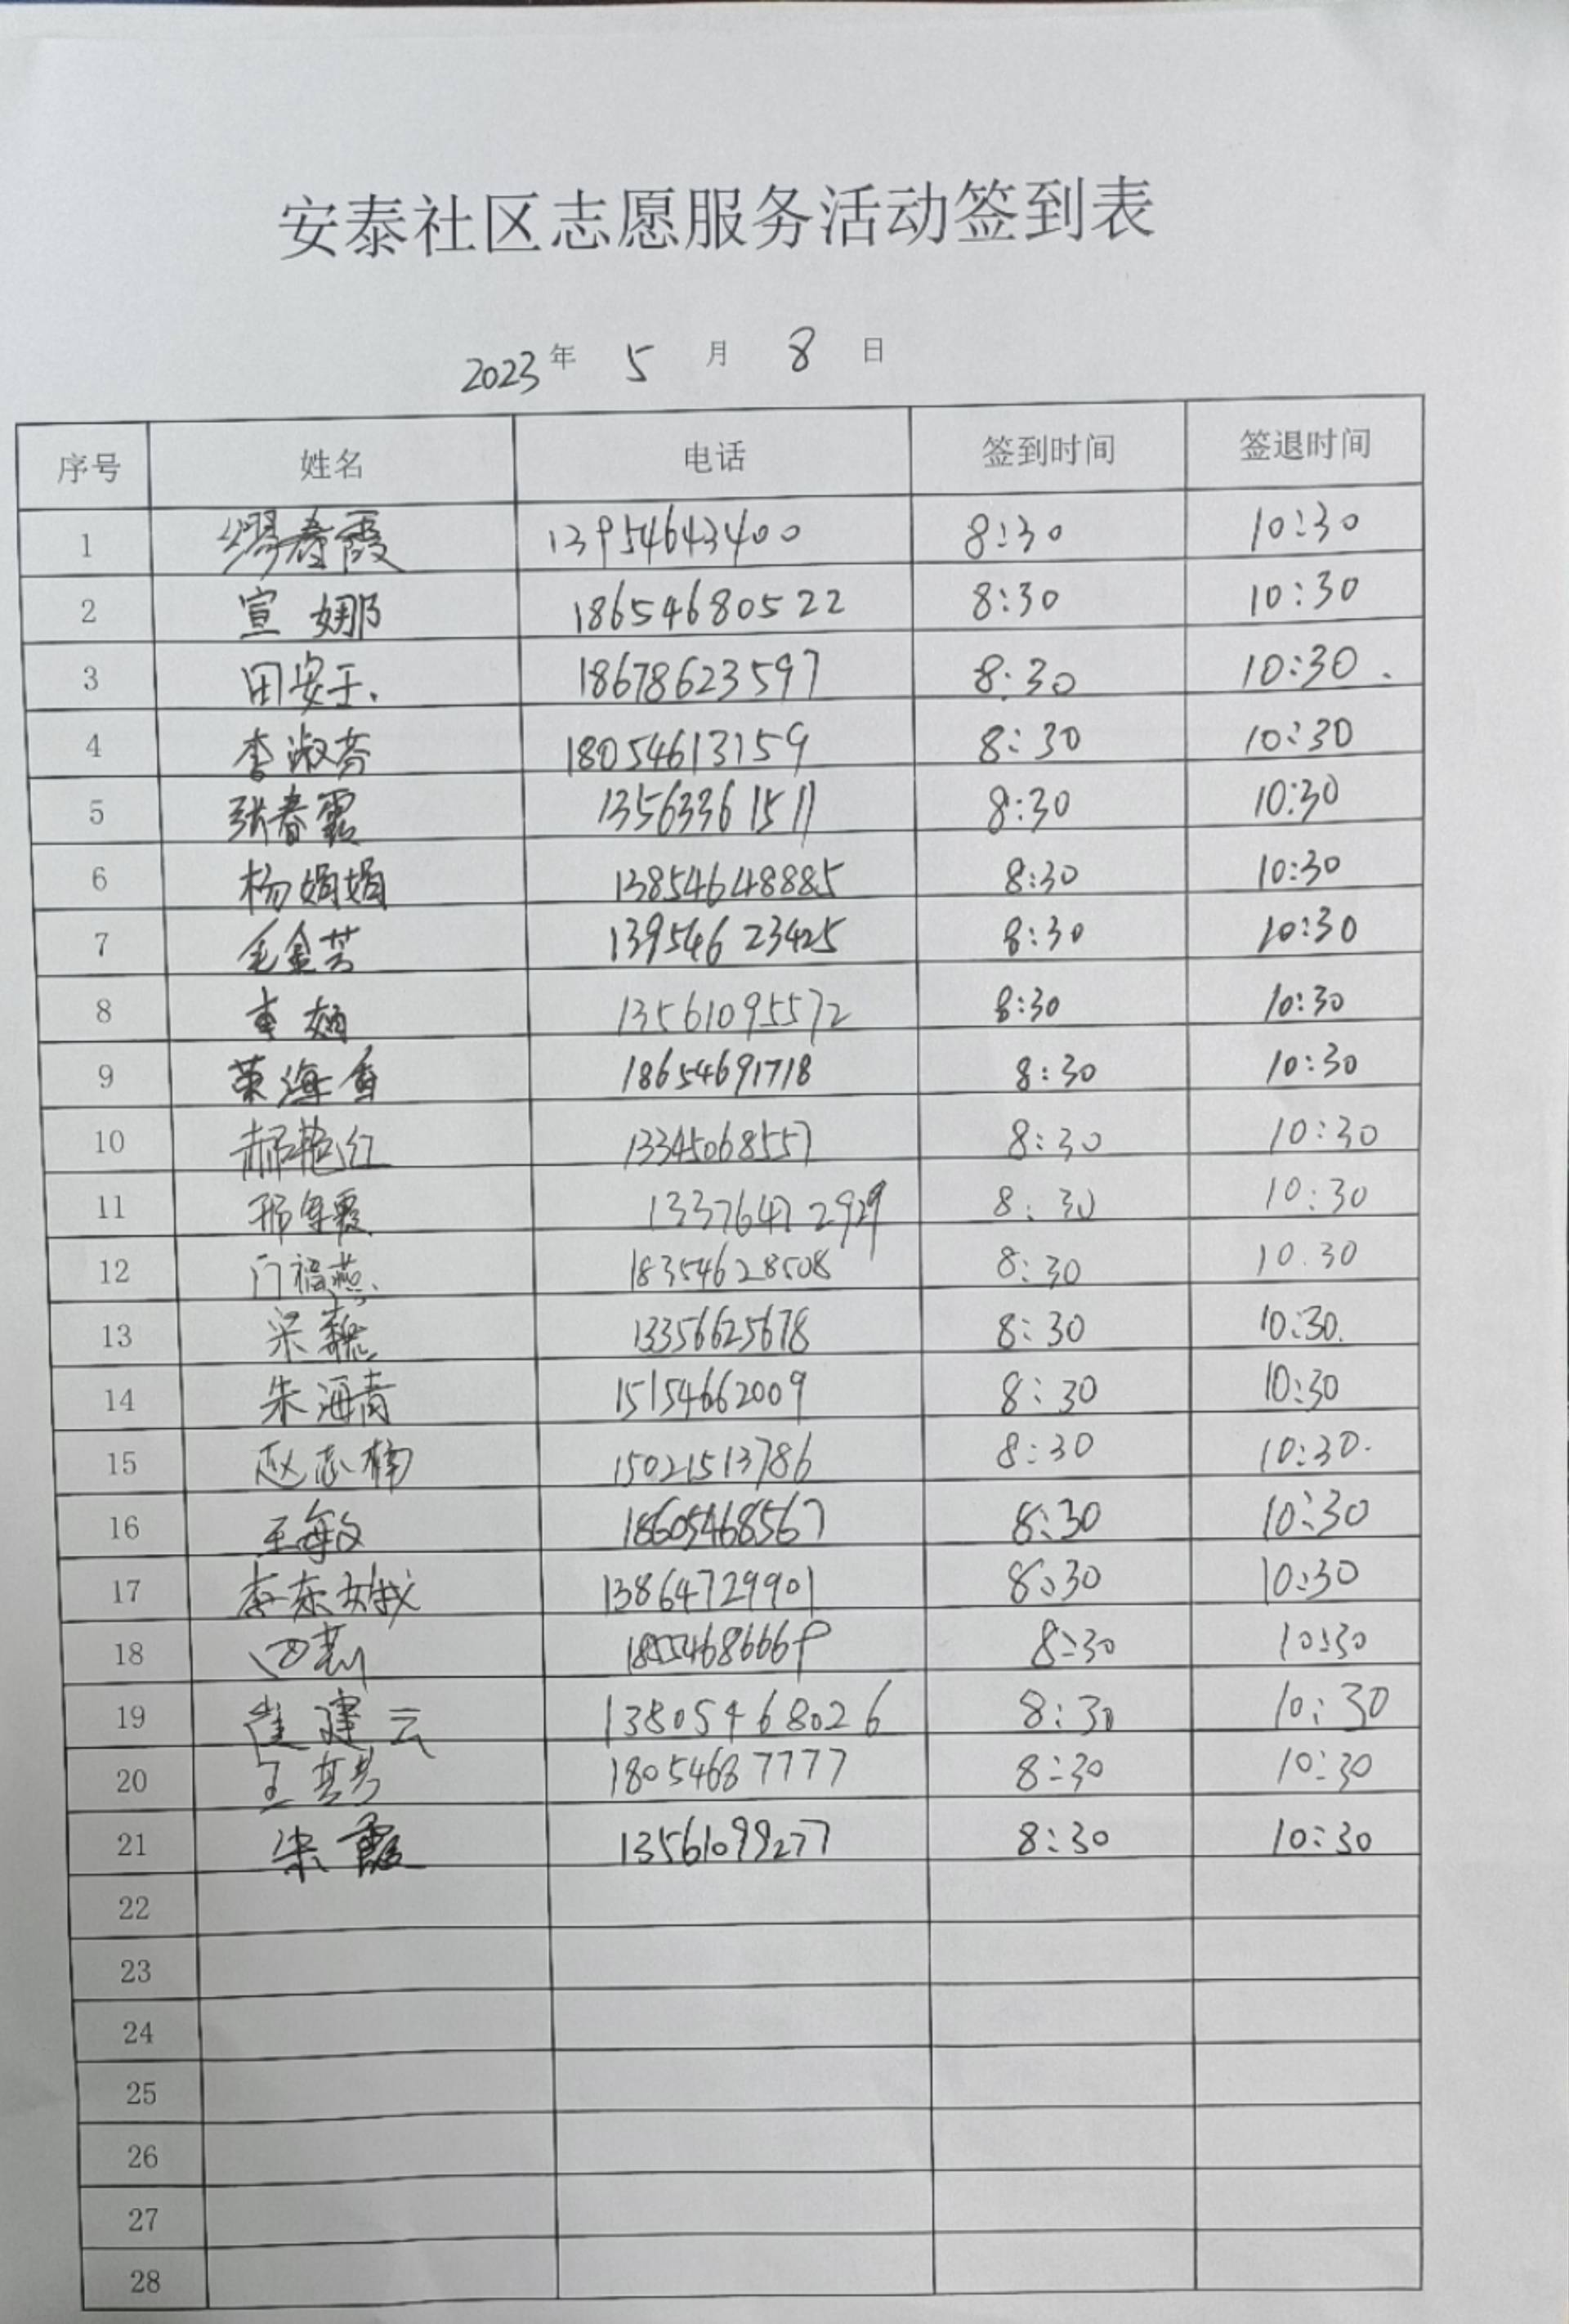 安泰社区志愿服务活动签到表
2023年 5 月 8 日
序号 姓名 电话 签到时间 签退时间
1 缪春霞 13954643400 8:30 10:30
2 宣娜 18654680522 8:30 10:30
3 田安玉. 18678623597 8:30 10:30.
4 李淑芬 18054613159 8:30 10:30
5 张春霞 13563361511 8:30 10:30
6 杨娟娟 13854648885 8:30 10:30
7 毛金芳 13954623425 8:30 10:30
8 13561095572 8:30 10:30
9 荣海香 18654691718 8:30 10:30
10 郝艳红 13345068557 8:30 10:30
11 8:30 10:30
12 门福燕. 18354628508 8:30 10.30
13 梁 13356625678 8:30 10:30.
14 朱海青 15154662009 8:30 10:30
15 赵志楠 15021513786 8:30 10:30.
16 王敏 18605468567 8:30 10:30
17 李东 13864729901 8:30 10:30
18 8:30 10:30
19 崔建云 13805468026 8:30 10:30
20 王 18054687777 8:30 10:30
21 朱霞 13561099277 8:30 10:30
22
23
24
25
26
27
28